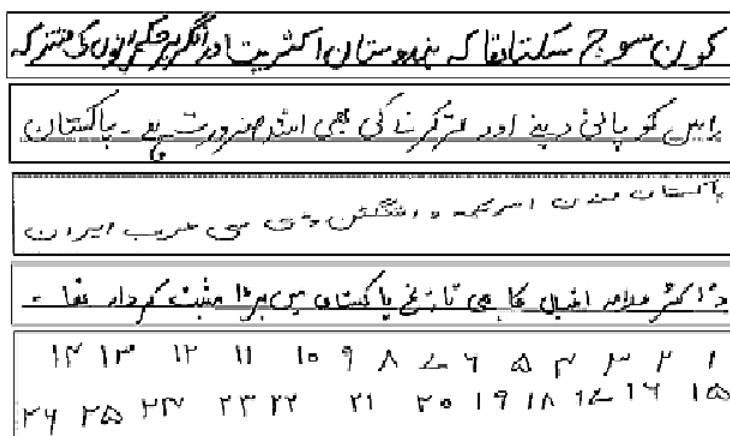 کون سوچ سکتا تھا کہ ہندوستان اکثریت اور انگریز حکمرانوں کی مشترکہ
راس کو پانی دینے اور تر کرنے کی بھی اشد ضرورت ہے ۔ پاکستان
پاکستان لندن امریکہ واشنگٹن ڈی سی عرب ایران
ڈاکٹر علامہ اقبال کا بھی تاریخ پاکستان میں بڑا مثبت کردار تھا ۔
۱ ۲ ۳ ۴ ۵ ۶ ۷ ۸ ۹ ۱۰ ۱۱ ۱۲ ۱۳ ۱۴
۱۵ ۱۶ ۱۷ ۱۸ ۱۹ ۲۰ ۲۱ ۲۲ ۲۳ ۲۴ ۲۵ ۲۶